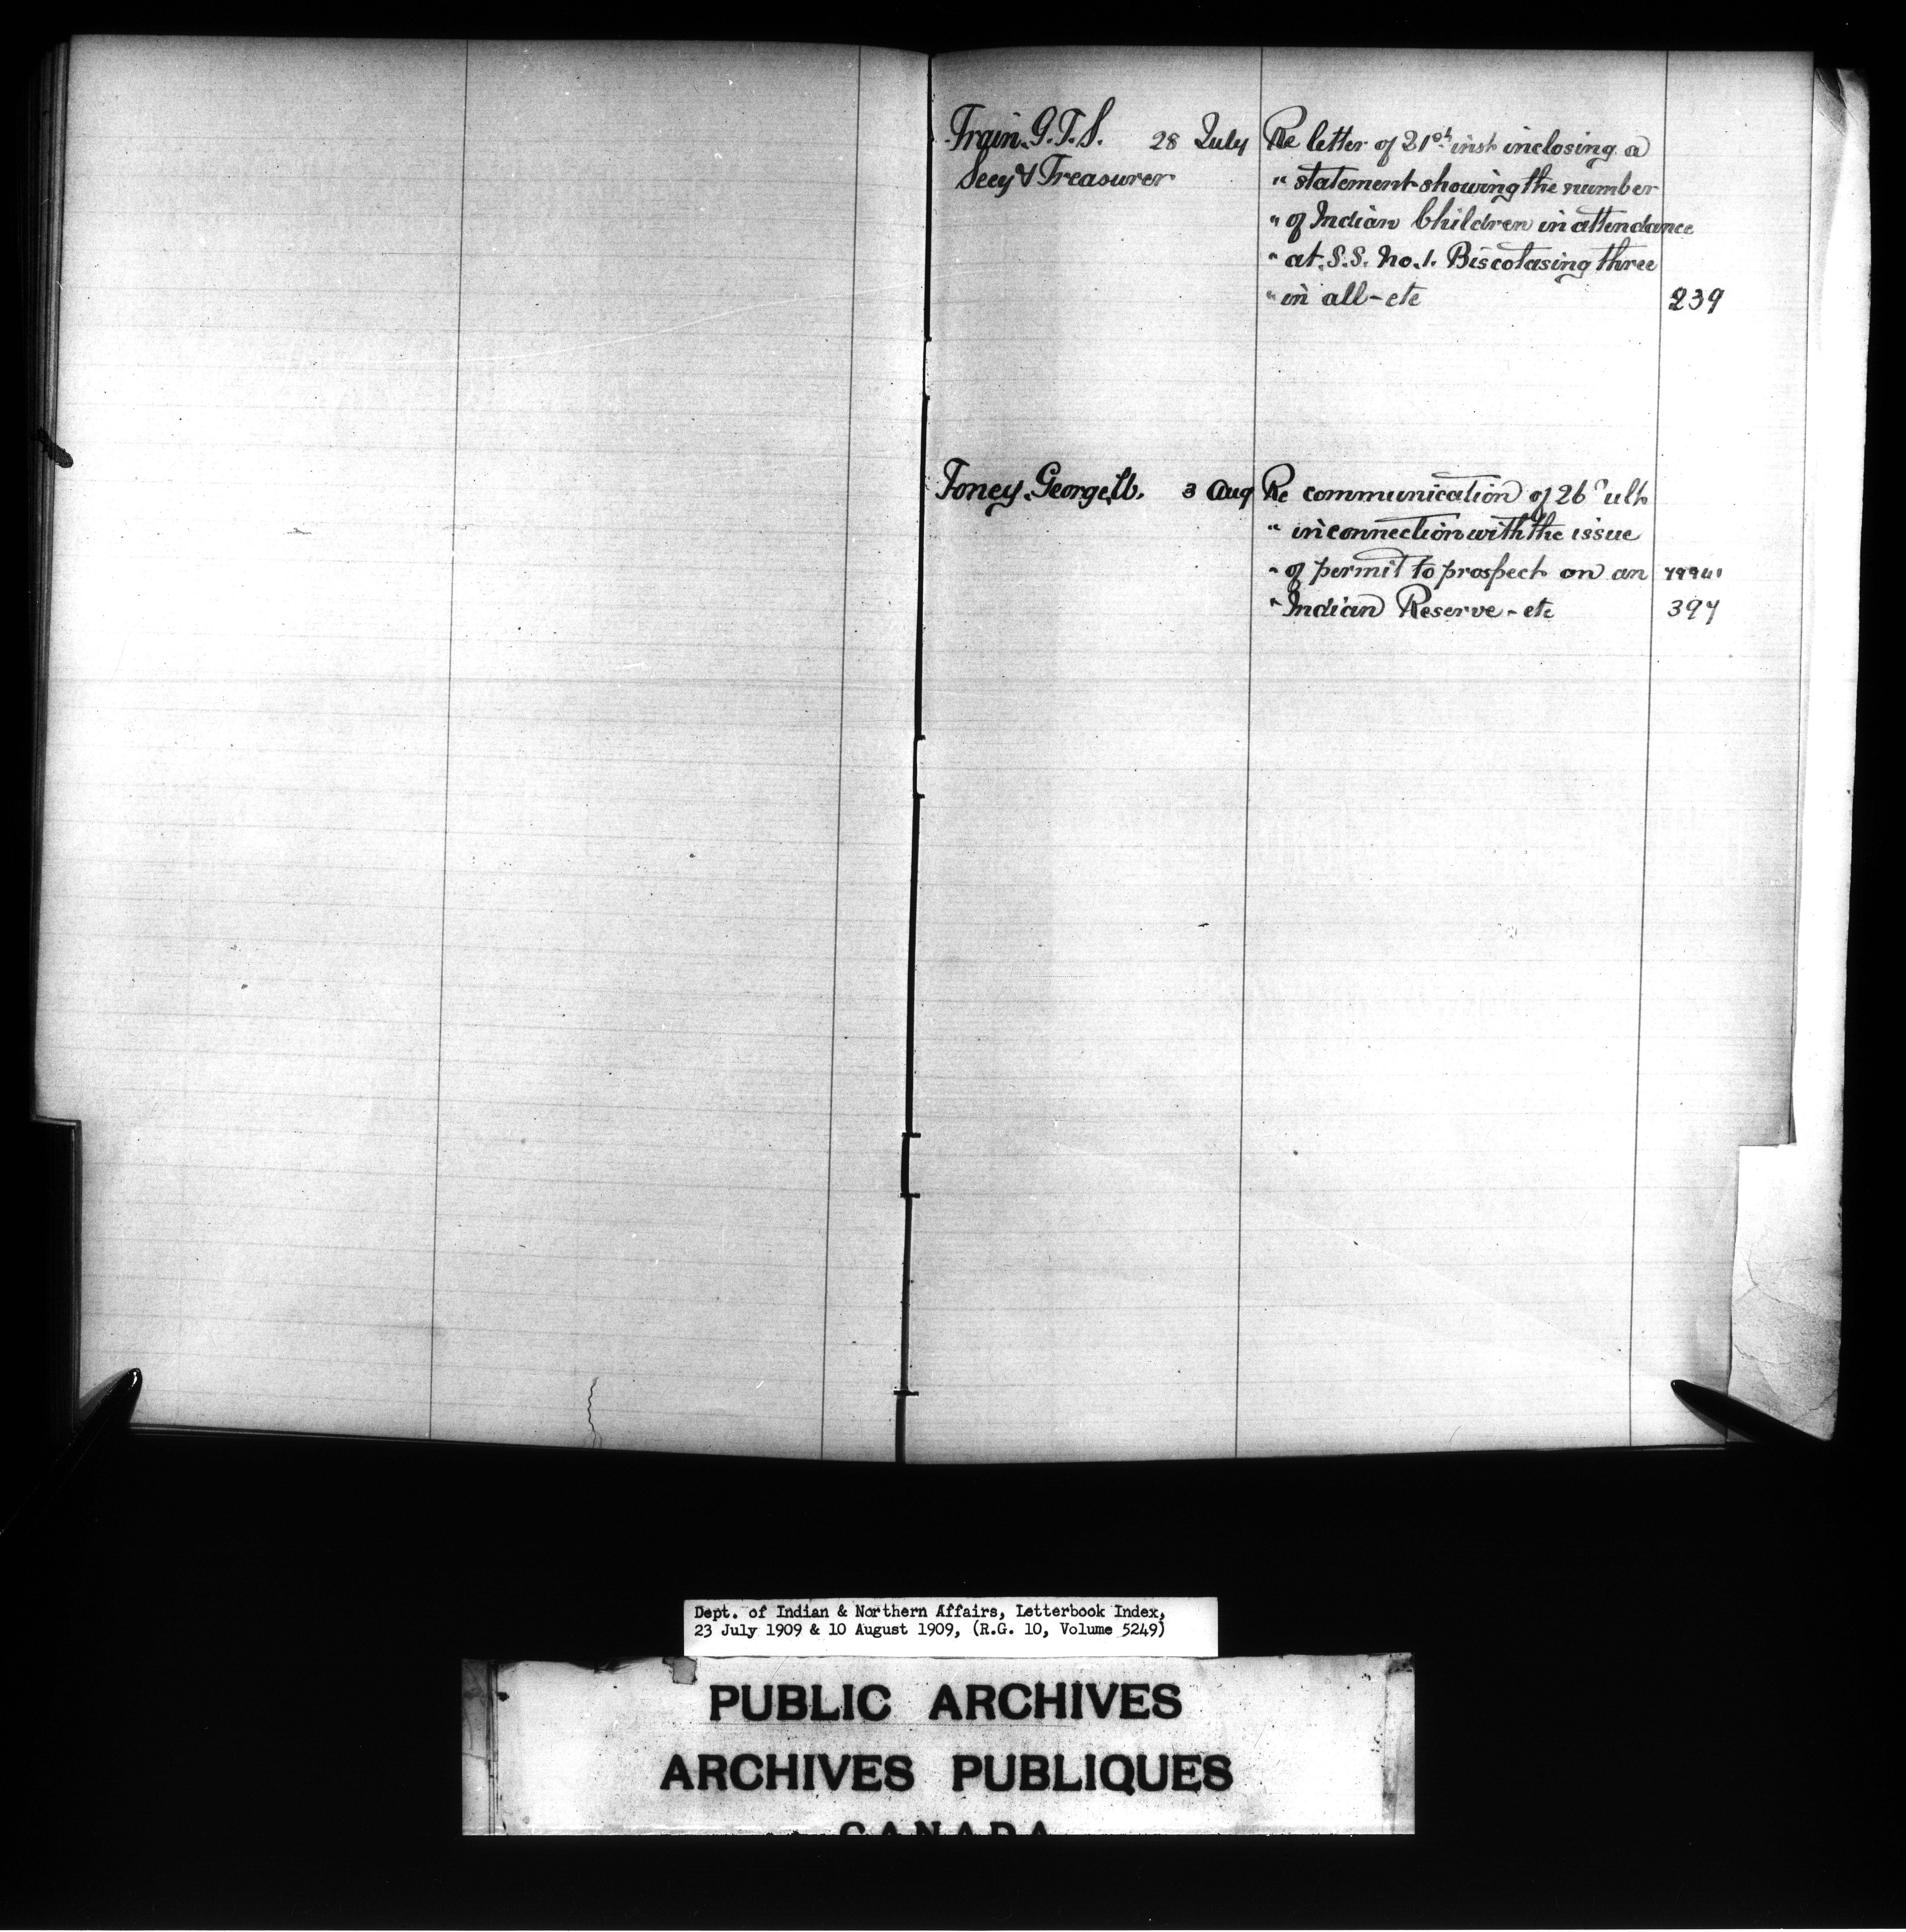 Train. G.T.S. 28 July Re letter of 21st inst inclosing a
Secy & Treasurer " statement showing the number
" of Indian Children in attendance
" at. S.S. No. 1. Biscotasing three
" in all - etc 239
Toney. George. 3 Aug Re communication of 26 ult
" in connection with the issue
" of permit to prospect on an
" Indian Reserve - etc 397
Dept. of Indian & Northern Affairs, Letterbook Index,
23 July 1909 & 10 August 1909, (R.G. 10, Volume 5249)
PUBLIC ARCHIVES
ARCHIVES PUBLIQUES
CANADA